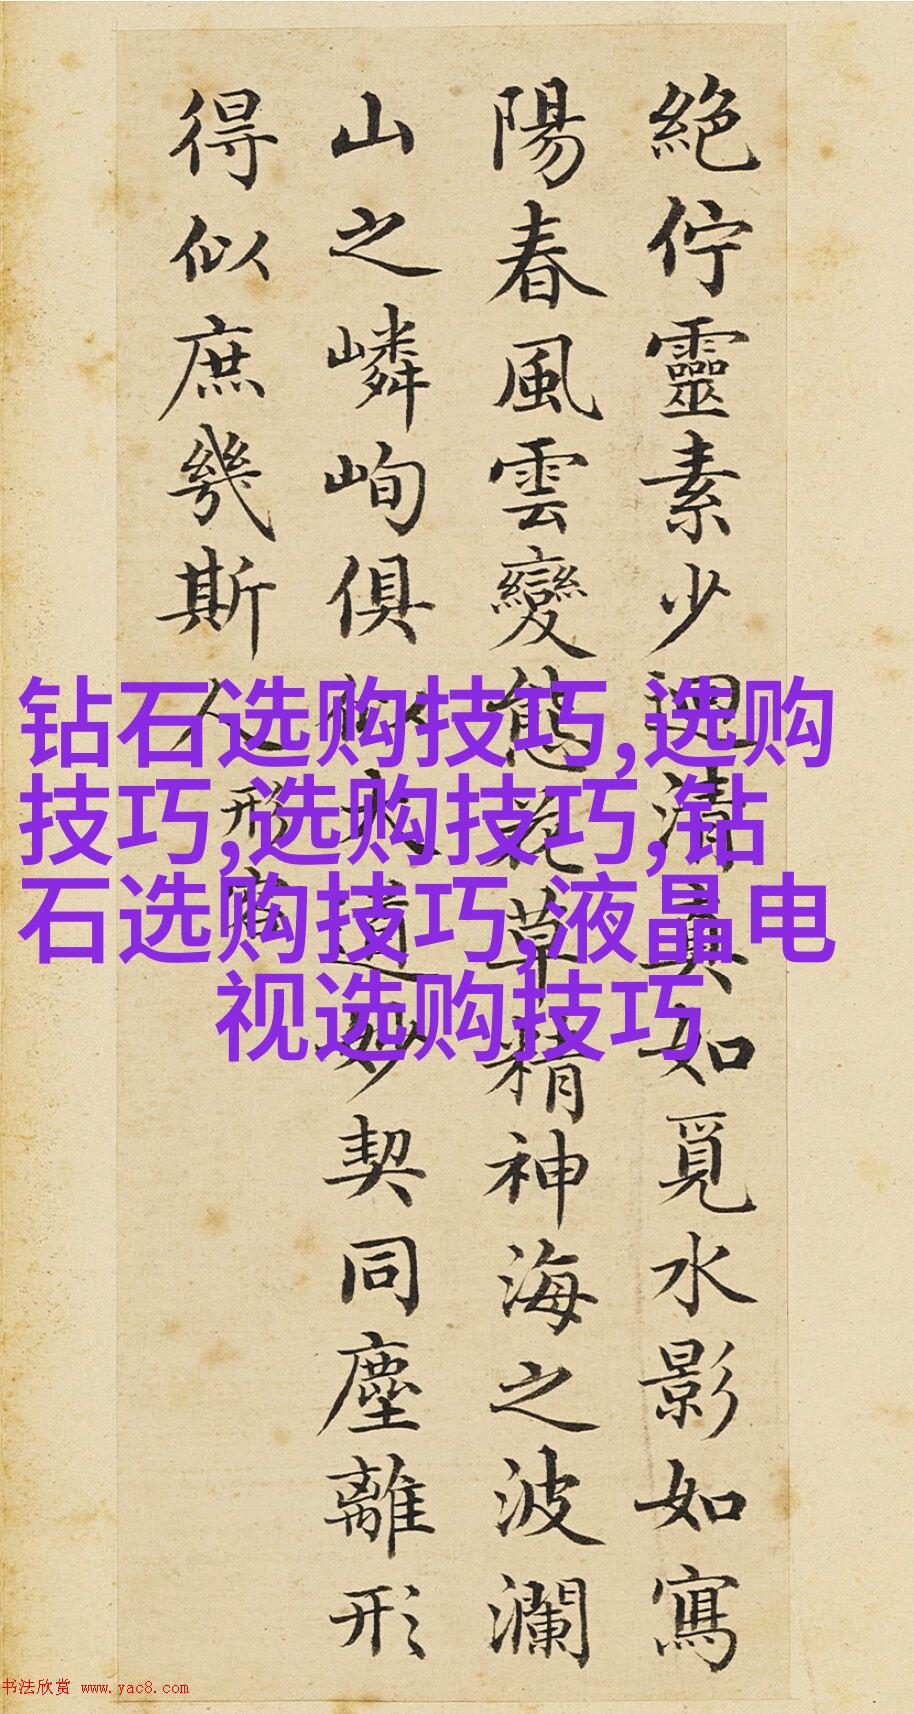 絕佇靈素少迴清真如覓水影如寫
陽春風雲變態花草精神海之波瀾
山之嶙峋俱似大道妙契同塵離形
得似庶幾斯人
形容
钻石选购技巧,选购
技巧,选购技巧,钻
石选购技巧,液晶电
视选购技巧
书法欣赏 www.yac8.com